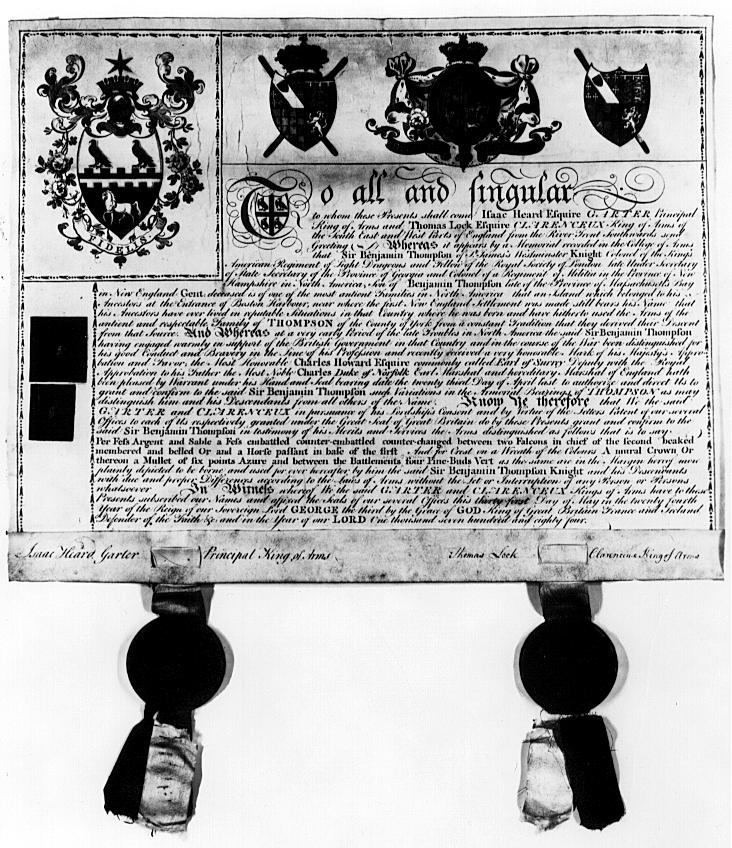 FIDELIS
To all and singular
to whom these Presents shall come Isaac Heard Esquire GARTER Principal
King of Arms and Thomas Lock Esquire CLARENCEUX King of Arms of
the South East and West Parts of England from the River Trent Southwards send
Greeting Whereas it appears by a Memorial recorded in the College of Arms
that Sir Benjamin Thompson of St James's Westminster Knight Colonel of the King's
American Regiment of Light Dragoons and Fellow of the Royal Society of London late Under Secretary
of State Secretary of the Province of Georgia and Colonel of a Regiment of Militia in the Province of New
Hampshire in North America, Son of Benjamin Thompson late of the Province of Massachusets Bay
in New England Gent. deceased is of one of the most antient Families in North America that an Island which belonged to his
Ancestors at the Entrance of Boston Harbour, near where the first New England Settlement was made still bears his Name that
his Ancestors have ever lived in reputable Situations in that Country where he was born and have hitherto used the Arms of the
antient and respectable Family of THOMPSON of the County of York from a constant Tradition that they derived their Descent
from that Source And Whereas at a very early Period of the late Troubles in North America the said Sir Benjamin Thompson
having engaged warmly in support of the British Government in that Country and in the course of the War been distinguished for
his good Conduct and Bravery in the Line of his Profession and recently received a very honorable Mark of his Majesty's Appro-
bation and Favor; the Most Honorable Charles Howard Esquire commonly called Earl of Surry Deputy with the Royal
Approbation to his Father the Most Noble Charles Duke of Norfolk Earl Marshal and hereditary Marshal of England hath
been pleased by Warrant under his Hand and Seal bearing date the twenty third Day of April last to authorize and direct Us to
grant and confirm to the said Sir Benjamin Thompson such Variations in the Armorial Bearings of THOMPSON as may
distinguish him and his Descendants from all others of the Name Know Ye therefore that We the said
GARTER and CLARENCEUX in pursuance of his Lordship's Consent and by Virtue of the Letters Patent of our several
Offices to each of Us respectively granted under the Great Seal of Great Britain do by these Presents grant and confirm to the
said Sir Benjamin Thompson in testimony of his Merits and Services the Arms distinguished as follows that is to say;
Per Fess Argent and Sable a Fess embattled counter-embattled counter-changed between two Falcons in chief of the second beaked
membered and belled Or and a Horse passant in base of the first And for Crest on a Wreath of the Colours A mural Crown Or
thereon a Mullet of six points Azure and between the Battlements four Pine-Buds Vert as the same are in the Margin hereof more
plainly depicted to be borne and used for ever hereafter by him the said Sir Benjamin Thompson Knight and his Descendants
with due and proper Differences according to the Laws of Arms without the Let or Interruption of any Person or Persons
whatsoever In Witness whereof We the said GARTER and CLARENCEUX Kings of Arms have to these
Presents subscribed our Names and affixed the Seals of our several Offices this thirty first Day of May in the twenty fourth
Year of the Reign of our Sovereign Lord GEORGE the third by the Grace of GOD King of Great Britain France and Ireland
Defender of the Faith &c and in the Year of our LORD One thousand seven hundred and eighty four.
Isaac Heard Garter Principal King of Arms
Thomas Lock Clarenceux King of Arms